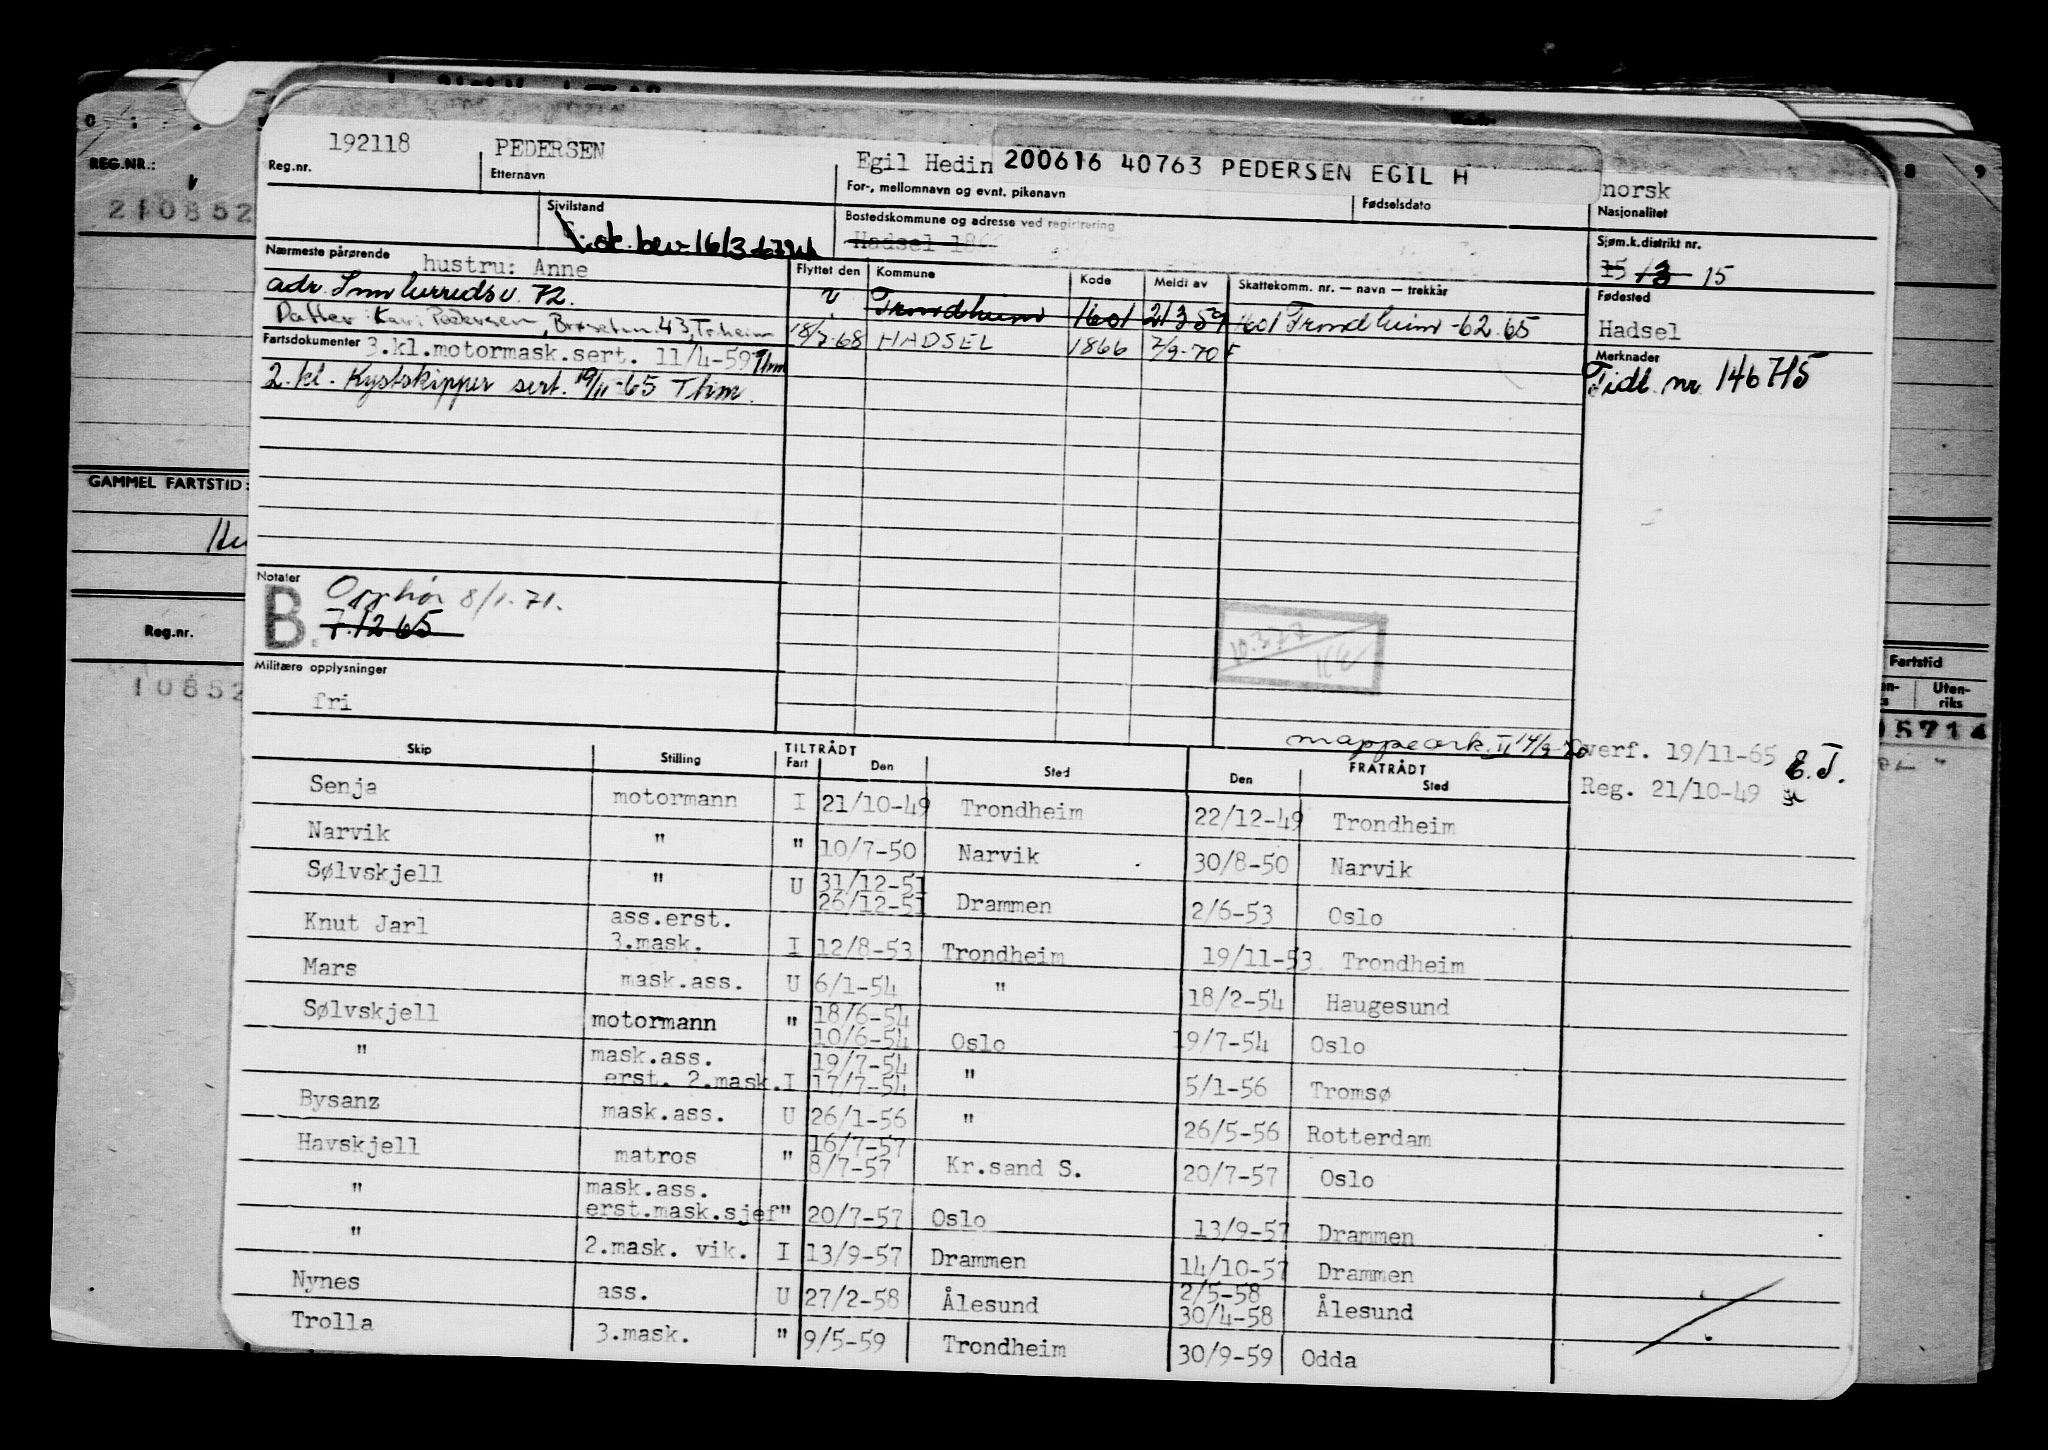 192118 PEDERSEN Egil Hedin 200616 40763 PEDERSEN EGIL H norsk
Reg.nr. Etternavn For-, mellomnavn og evnt. pikenavn Fødselsdato Nasjonalitet
REG.NR.:
210852
Sivilstand Bostedskommune og adresse ved registrering Sjøm.k.distrikt nr.
Hadsel 15 /3 15
Nærmeste pårørende hustru: Anne Flyttet den Kommune Kode Meldt av Skattekomm. nr. — navn — trekkår Fødested
adr. 72. Trondheim 1601 21359 1601 Trondheim -62.65 Hadsel
Datter: Kari Pedersen, 43, Tr.heim 18/7-68 HADSEL 1866 7/9-70 Merknader
Fartsdokumenter 3.kl.motormask.sert. 11/4-59 Thm Tidl. nr 146715
2. kl. Kystskipper sert. 19/11-65 Thm.
GAMMEL FARTSTID:
Notater
B. Opphør 8/1.71.
7.12 65
Reg.nr.
Militære opplysninger
10852
fri
Fartstid
Uten-
riks
05714
mappeark. II 14/9-70 Overf. 19/11-65 E.T.
Reg. 21/10-49
Skip Stilling TILTRÅDT Fart Den Sted FRATRÅDT Den Sted
Senja motormann I 21/10-49 Trondheim 22/12-49 Trondheim
Narvik " " 10/7-50 Narvik 30/8-50 Narvik
Sølvskjell " U 31/12-51 26/12-51 Drammen 2/6-53 Oslo
Knut Jarl ass.erst. 3.mask. I 12/8-53 Trondheim 19/11-53 Trondheim
Mars mask.ass. U 6/1-54 " 18/2-54 Haugesund
Sølvskjell motormann " 18/6-54 10/6-54 Oslo 19/7-54 Oslo
" mask.ass. erst. 2.mask. I 19/7-54 17/7-54 " 5/1-56 Tromsø
Bysanz mask.ass. U 26/1-56 " 26/5-56 Rotterdam
Havskjell matros " 16/7-57 8/7-57 Kr.sand S. 20/7-57 Oslo
" mask.ass. erst.mask.sjef " 20/7-57 Oslo 13/9-57 Drammen
" 2.mask. vik. I 13/9-57 Drammen 14/10-57 Drammen
Nynes ass. U 27/2-58 Ålesund 2/5-58 30/4-58 Ålesund
Trolla 3.mask. " 9/5-59 Trondheim 30/9-59 Odda